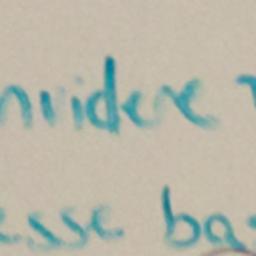 nvidere
esse ba